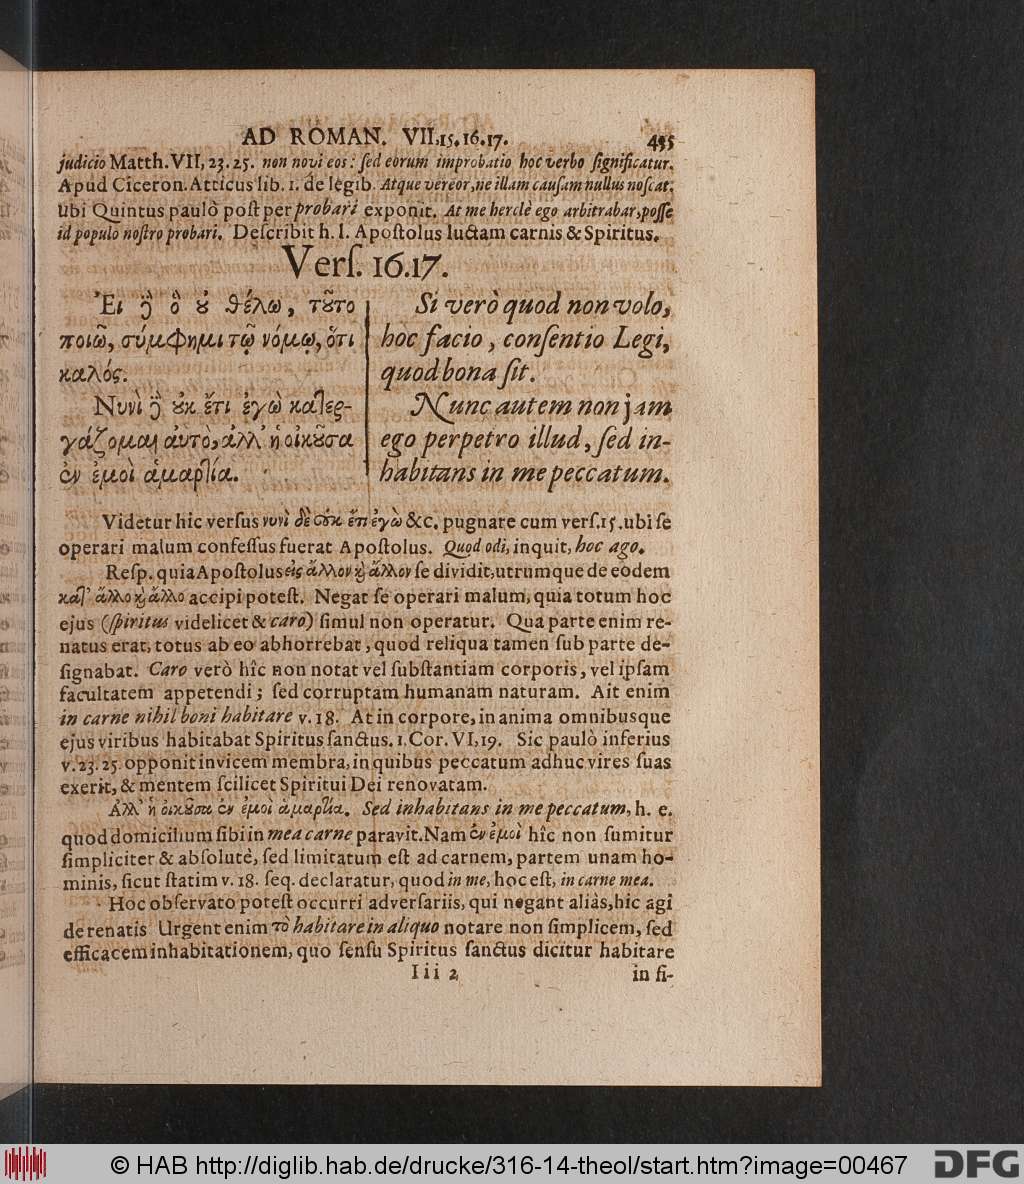 AD ROMAN. VII, 15. 16. 17. 435
judicio Matth. VII, 23. 25. non novi eos: ſed eorum improbatio hoc verbo ſignificatur.
Apud Ciceron. Atticus lib. 1. de legib. Atque vereor, ne illam cauſam nullus noſcat;
ubi Quintus paulò poſt per probari exponit. At me herclè ego arbitrabar, poſſe
id populo noſtro probari. Deſcribit h. l. Apoſtolus luctam carnis & Spiritus.
Verſ. 16. 17.
Ἐι δὲ ὃ ȣ θέλω, τȣ͂το
ποιῶ, σύμφημι τῷ νόμῳ, ὅτι
καλός.
Νυνὶ δὲ ȣκ ἔτι ἐγὼ κατερ-
γάζομαι αὐτὸ, ἀλλ' ἡ οἰκȣ͂σα
ἐν ἐμοὶ ἁμαρτία.
Si verò quod non volo,
hoc facio, conſentio Legi,
quod bona ſit.
Nunc autem non jam
ego perpetro illud, ſed in-
habitans in me peccatum.
Videtur hic verſus νυνὶ δὲ οὐκ ἔτι ἐγὼ &c. pugnare cum verſ. 15. ubi ſe
operari malum confeſſus fuerat Apoſtolus. Quod odi, inquit, hoc ago.
Reſp. quia Apoſtolus εἰς ἄλλον κὶ ἄλλον ſe dividit, utrumque de eodem
κατ' ἄλλο κὶ ἄλλο accipi poteſt. Negat ſe operari malum, quia totum hoc
ejus (ſpiritus videlicet & caro) ſimul non operatur. Qua parte enim re-
natus erat, totus ab eo abhorrebat, quod reliqua tamen ſub parte de-
ſignabat. Caro verò hîc non notat vel ſubſtantiam corporis, vel ipſam
facultatem appetendi; ſed corruptam humanam naturam. Ait enim
in carne nihil boni habitare v. 18. At in corpore, in anima omnibusque
ejus viribus habitabat Spiritus ſanctus. 1. Cor. VI, 19. Sic paulò inferius
v. 23. 25. opponit invicem membra, in quibus peccatum adhuc vires ſuas
exerit, & mentem ſcilicet Spiritui Dei renovatam.
Ἀλλ' ἡ οἰκȣ͂σα ἐν ἐμοὶ ἁμαρτία. Sed inhabitans in me peccatum, h. e.
quod domicilium ſibi in mea carne paravit. Nam ἐν ἐμοὶ hîc non ſumitur
ſimpliciter & abſolutè, ſed limitatum eſt ad carnem, partem unam ho-
minis, ſicut ſtatim v. 18. ſeq. declaratur, quod in me, hoc eſt, in carne mea.
Hoc obſervato poteſt occurri adverſariis, qui negant aliàs, hic agi
de renatis Urgent enim τὸ habitare in aliquo notare non ſimplicem, ſed
efficacem inhabitationem, quo ſenſu Spiritus ſanctus dicitur habitare
Iii 2 in ſi-
© HAB http://diglib.hab.de/drucke/316-14-theol/start.htm?image=00467 DFG